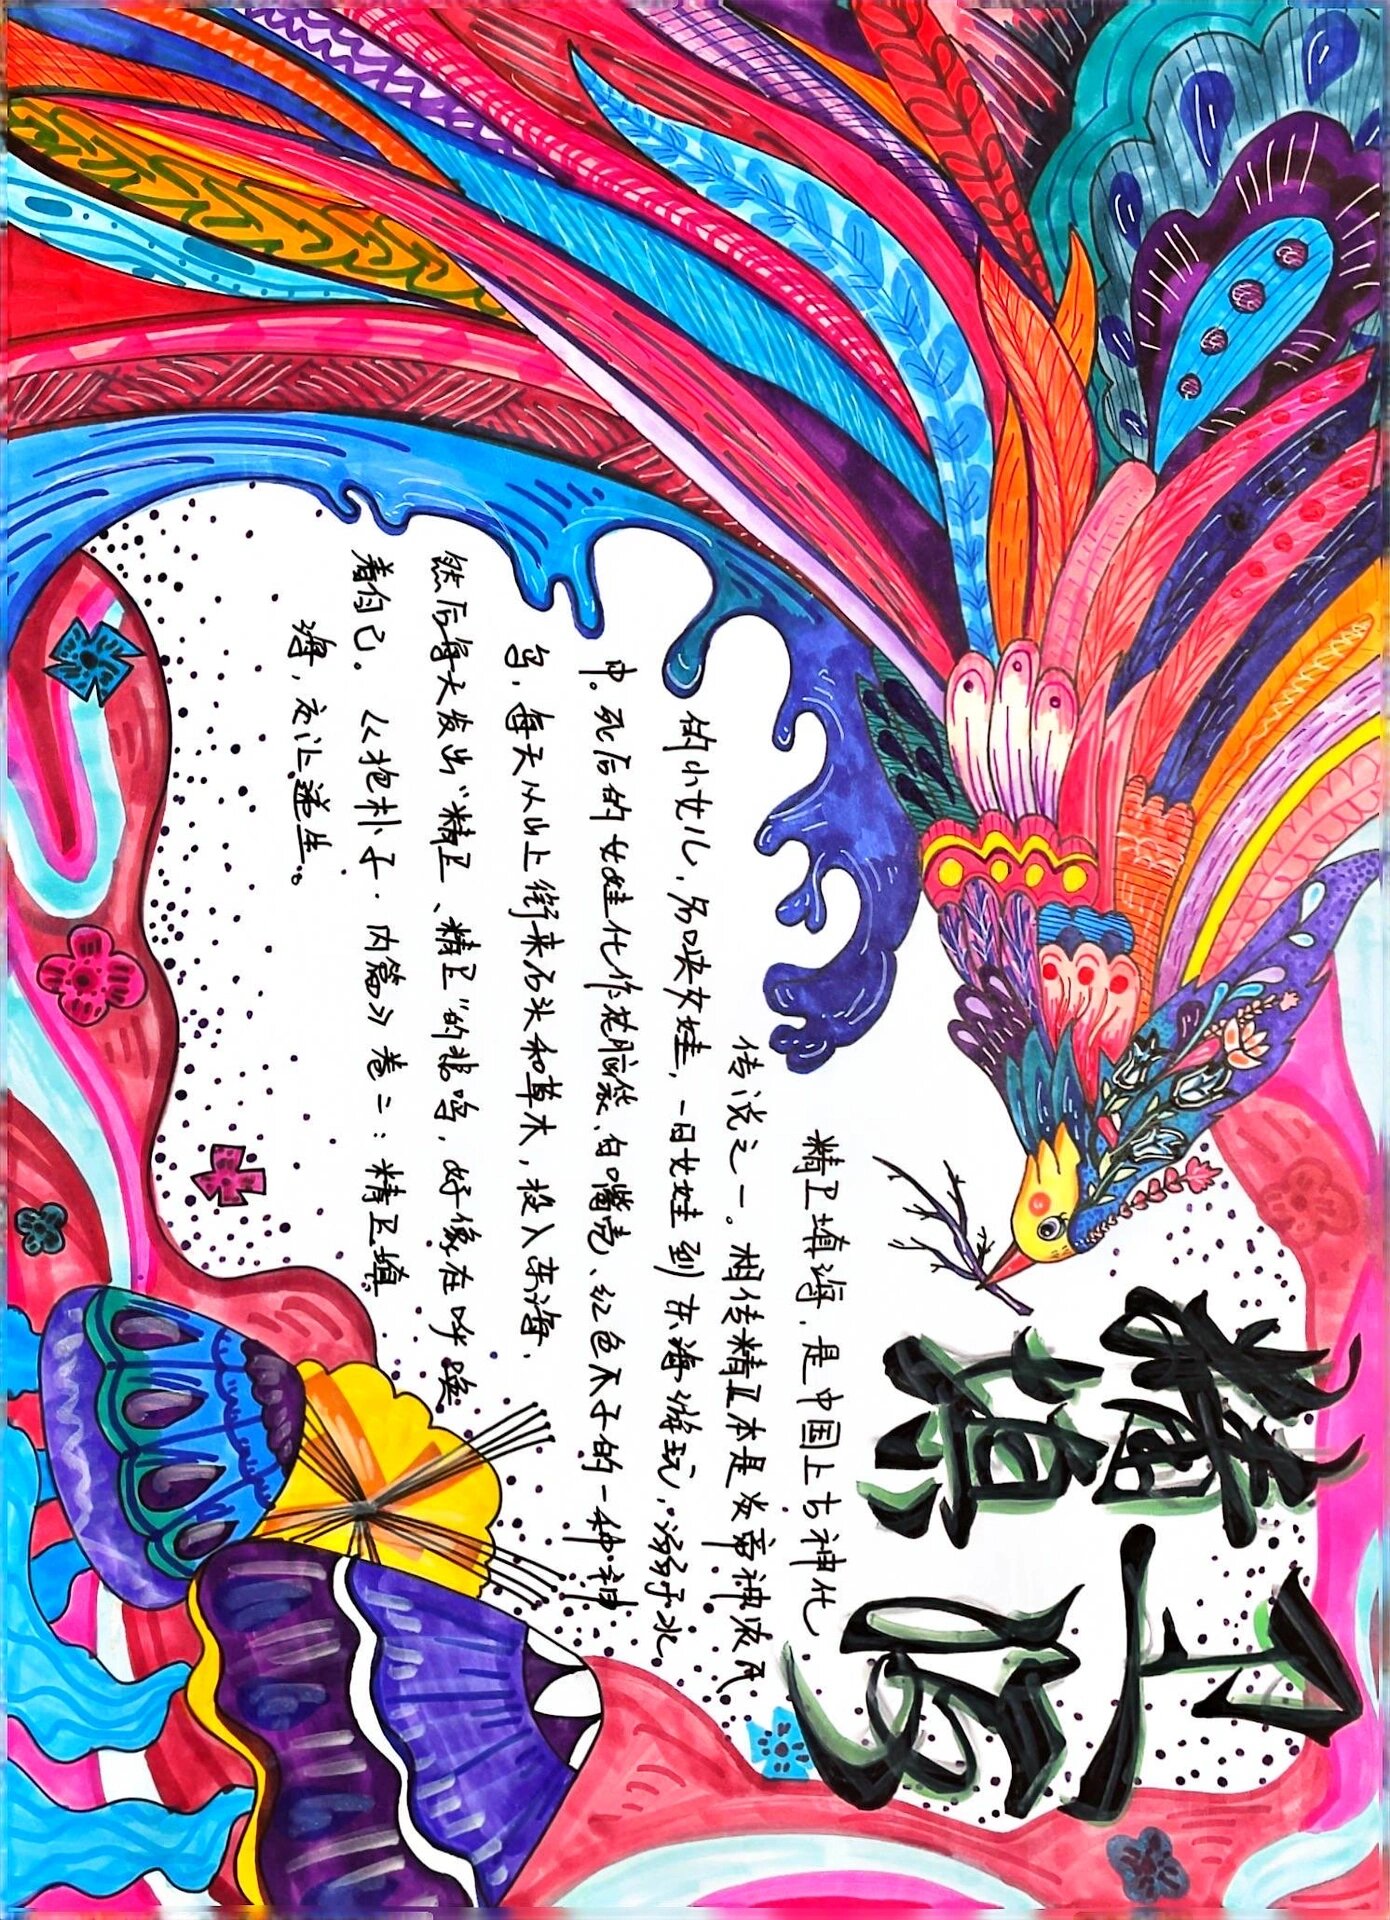 精卫
填海
精卫填海，是中国上古神化
传说之一。相传精卫本是炎帝神农氏
的小女儿，名唤女娃，一日女娃到东海游玩，溺于水
中。死后的女娃化作花脑袋、白嘴壳、红色爪子的一种神
鸟，每天从山上衔来石头和草木，投入东海，
然后每天发出“精卫、精卫”的悲鸣，好像在呼唤
着自己。《抱朴子·内篇》卷二：精卫填
海，交让递生。